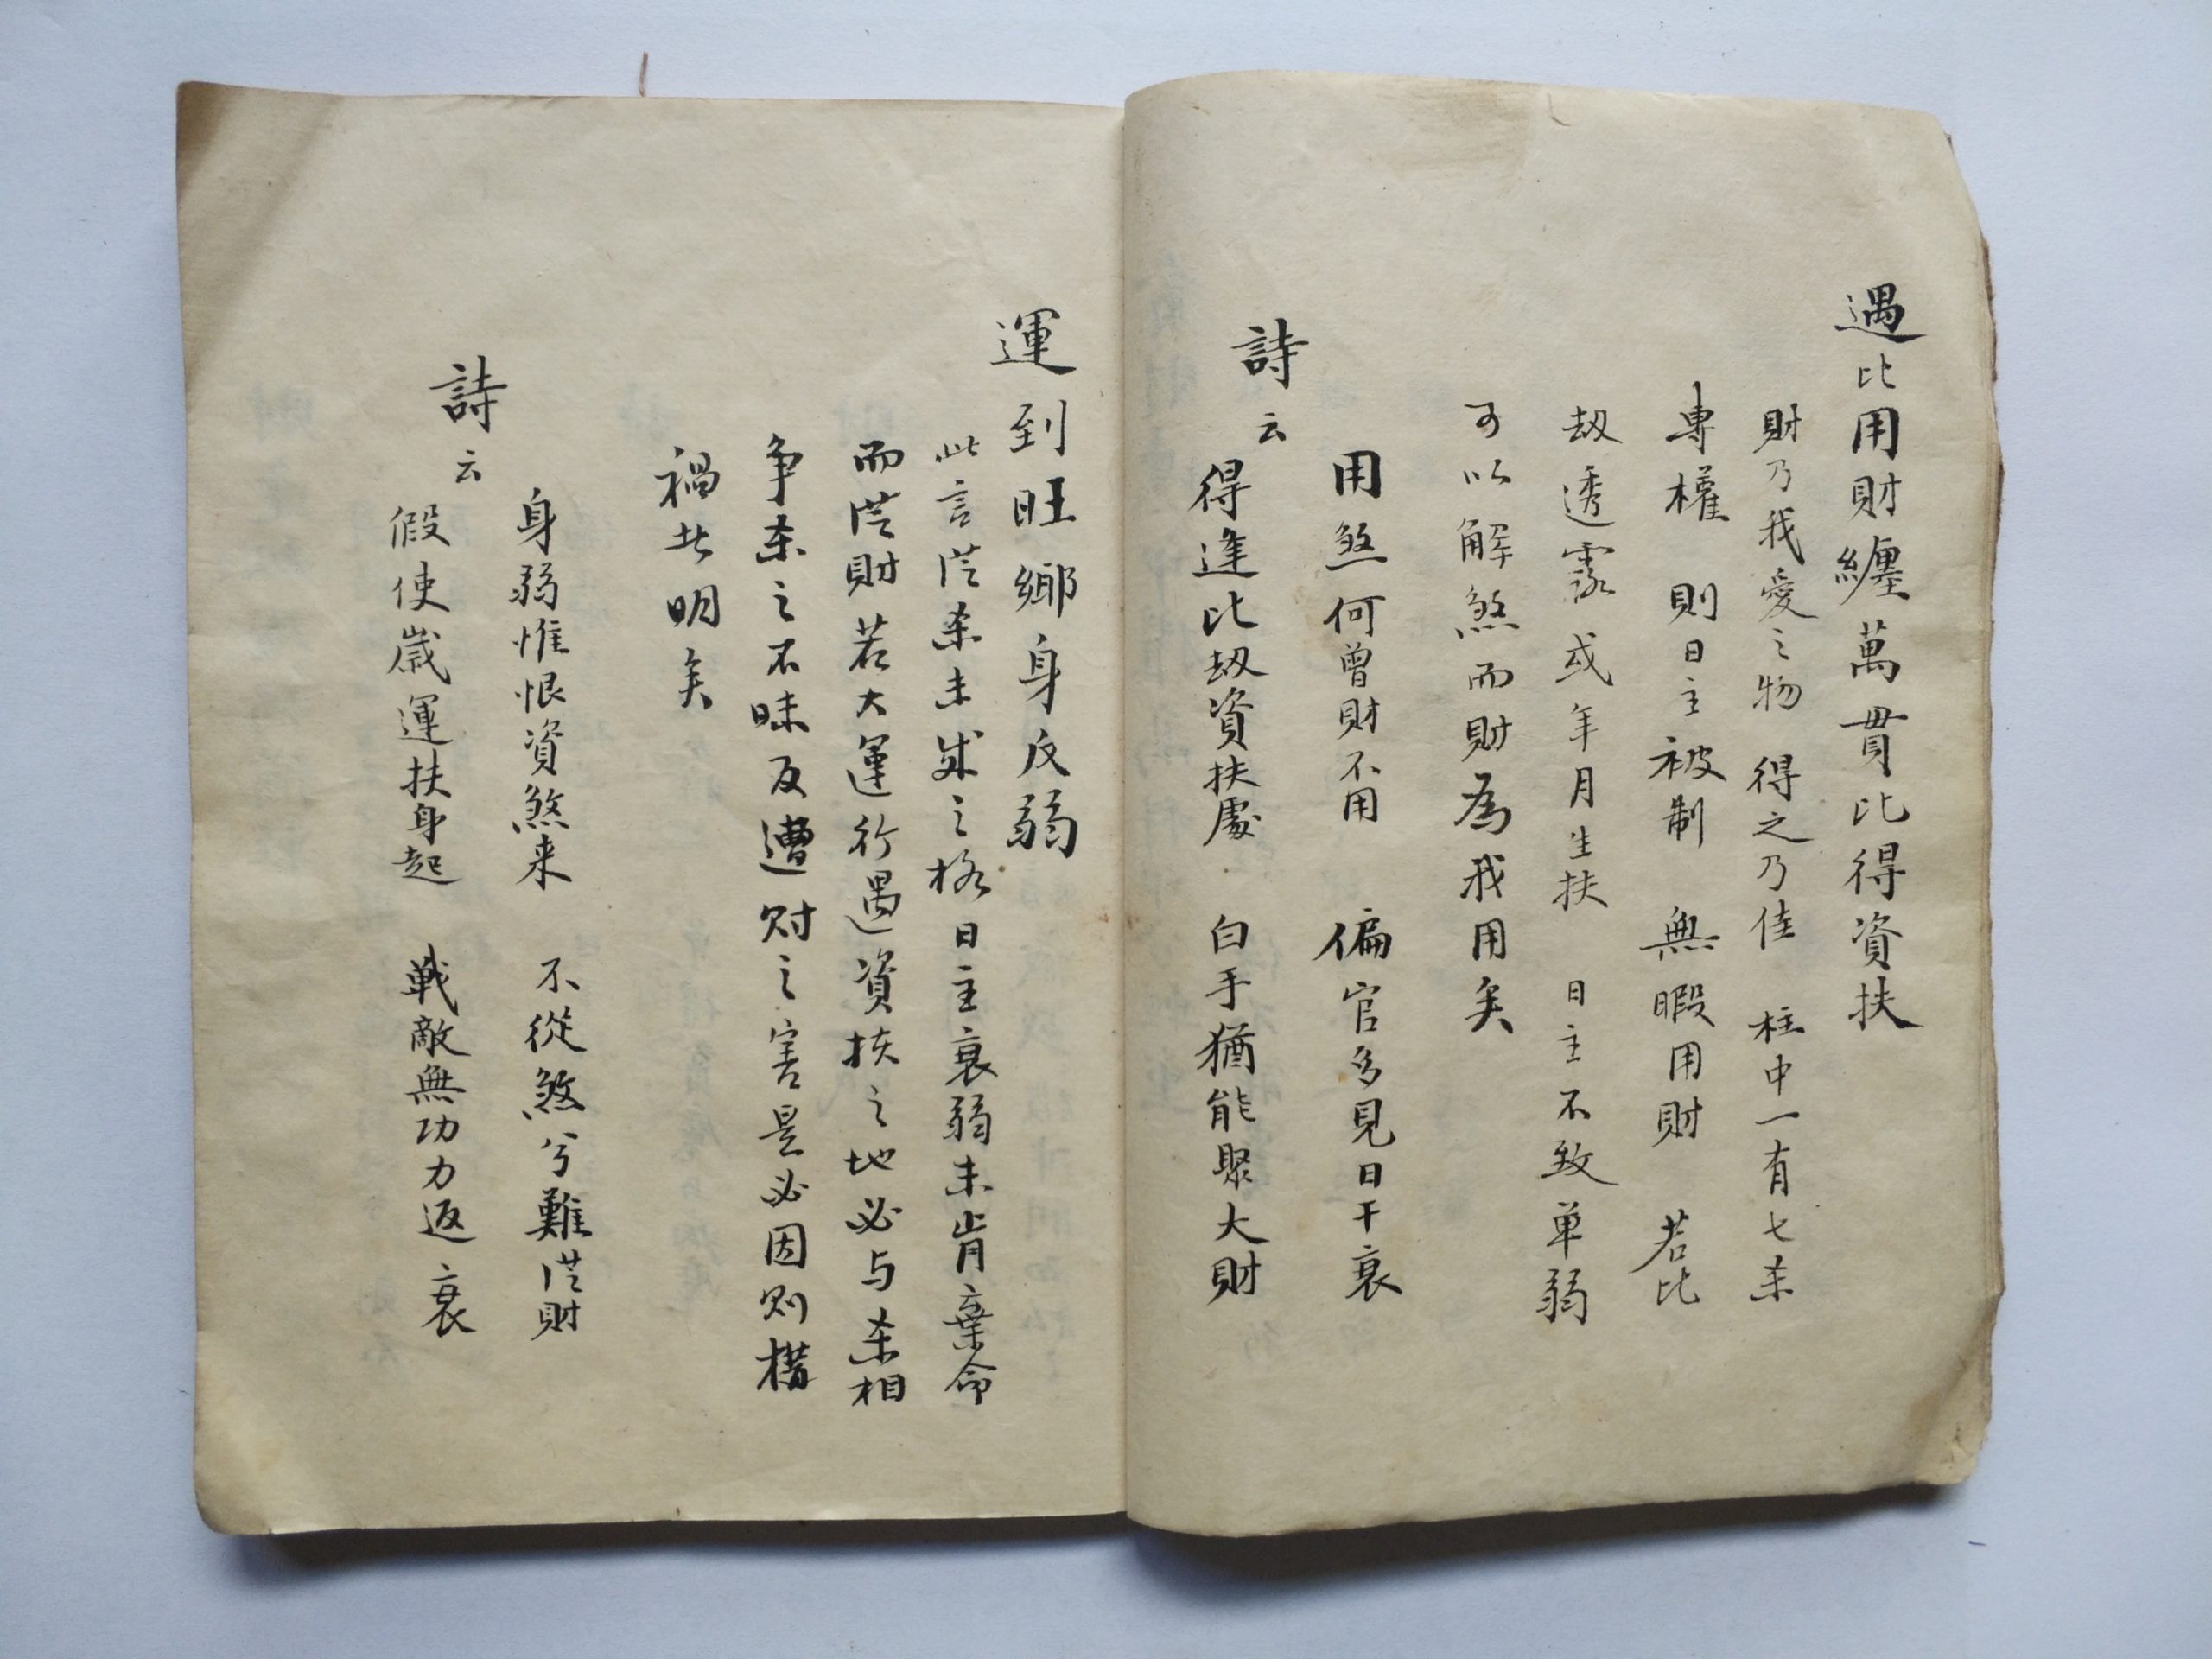 遇比用財纏萬貫比得資扶
財乃我愛之物得之乃佳柱中一有七杀
專權則日主被制無暇用財若比
刼透露或年月生扶日主不致单弱
可以解煞而財為我用矣
詩云
用煞何曾財不用偏官多見日干衰
得逢比刼資扶處白手猶能聚大財
運到旺鄉身反弱
此言従杀未成之格日主衰弱未肯棄命
而従財若大運行遇資扶之地必与杀相
争杀之不味反遭财之害是必因财構
禍昭明矣
詩云
身弱惟恨資煞来不從煞兮難従財
假使歲運扶身起戦敵無功力返衰